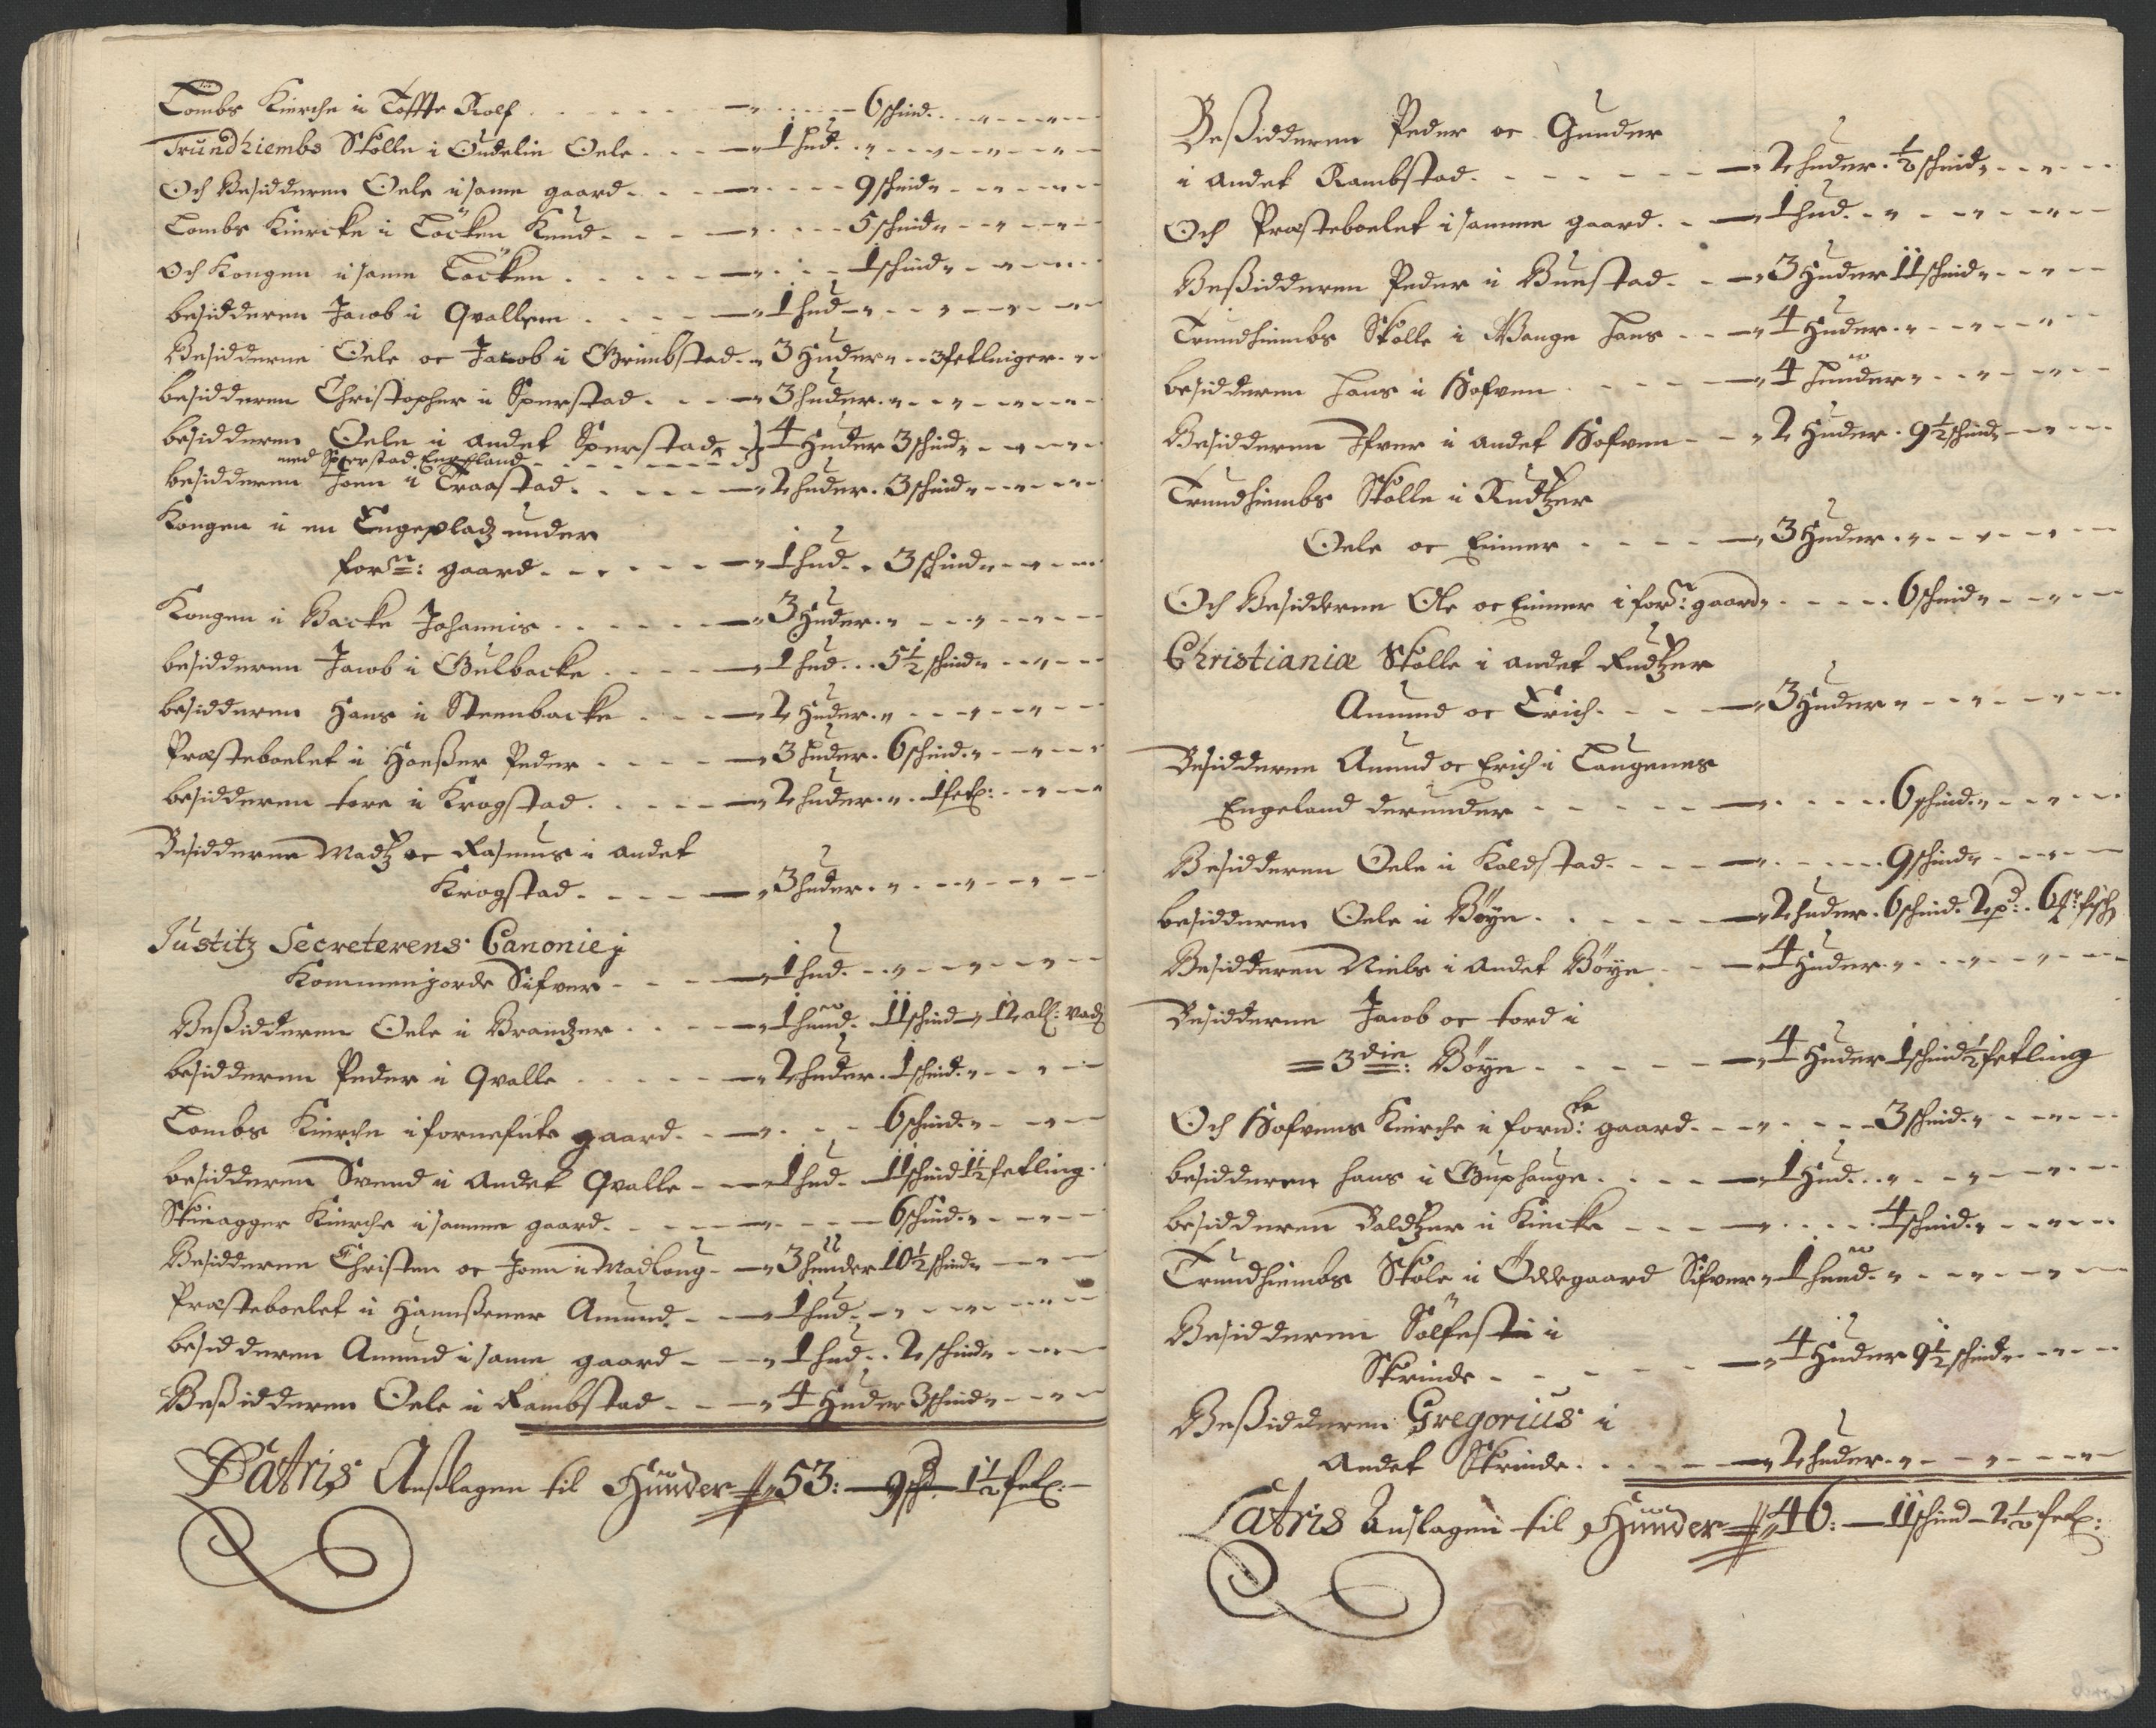 Tombs Kierche i Toffte Rolf - - - 6 schind.
Trundhiembs Skolle i Oudelin Oele - - - 1 hud.
Och Besidderen Oele i same gaard - - - 9 schind
Tombs Kiercke i Töcken Knud - - - 5 schind
Och Kongen i same Töcken - - - 1 schind
besidderen Jacob i Qvallem - - - 1 hud
Besidderne Oele oc Jacob i Grimbstad - 3 Huder - 3 fetlinger
besidderen Christopher i Sperstad - - - 3 huder
besidderen Oele i andet Sperstad - } 4 Huder 3 schind
med Sperstad Engeland
besidderen Joen i Traastad - - - 2 huder. 3 schind
Kongen i en Engepladz under
forn: gaard - - - 1 hud. 3 schind
Kongen i Backe Johannis - - - 3 Huder
besidderen Jacob i Gulbacke - - - 1 hud. 5½ schind
besidderen Hans i Steenbacke - - - 2 Huder
Præsteboelet i Haeßer Peder - - - 3 huder. 6 schind
besidderen tore i Krogstad - - - 2 huder. 1 fetl:
Besidderne Madtz oc Rasmus i andet
Krogstad - - - 3 huder
Justitz Secreterens Canonie j
Kommenjorde Sifver - - - 1 hud.
Beßidderen Oele i Brandzer - - - 1 hud. 11 schind 12 all: vad
besidderen Peder i Qvalle - - - 2 huder. 1 schind
Tombs Kierche i fornefnte gaard - - - 6 schind
besidderen Svend i Andet Qvalle - - 1 hud. 11 schind 1½ fetling
Skieagger Kierche i samme gaard - - - 6 schind
Besidderen Christen oc Joen i Madlaug - 3 hunder 10½ schind
Præsteboelet i Hamßener Amund - - 1 hud.
besidderen Amund i same gaard - - 1 hud. 2 schind
Beßidderen Oele i Rambstad - - 4 Huder 3 schind
Latris Anßlagen til Hunder 53: - 9 sch. 1½ fetl:
Beßidderen Peder oc Gunder
i andet Rambstad - - - 2 huder. ½ schind
Och Præsteboelet i samme gaard - - 1 hud.
Beßidderen Peder i Buestad - - 3 Huder 11 schind
Trundhiembs Skolle i Wange Hans - - 4 Huder
besidderen Hans i Hofven - - - 4 hunder
Besidderen Ifver i andet Hofven - - 2 Huder. 9½ schind
Trundhiembs Skolle i Rudtzer
Oele oc Einner - - - 3 Huder
Och Besidderne Ole oc Einner i forn: gaard - - 6 schind
Christianiæ Skolle i andet Rudtzer
Amund oc Erich - - - 3 Huder
Besidderne Amund oc Erich i Taugenes
Engeland derunder - - - 6 schind
Besidderen Oele i Koldstad - - - 9 schind
besidderen Oele i Böye - - - 2 huder. 6 schind. 2 pd: 6 qr fisch
Besidderen Niels i Andet Böye - - 4 Huder
Besidderne Jacob oc tord i
= 3die: Böye - - - 4 Huder 1 schind ½ fetling
Och Hofvens Kierche i fornte: gaard - - 3 schind
besidderen Hans i Guphauge - - - 1 Hud.
besidderen Baldtzer i Kiecke - - - 4 schind
Trundhiembs Skole i Öddegaard Sifver 1 hund.
Besidderen Sölfest i i
Skrinde - - - 4 Huder 9½ schind
Beßidderen Gregorius i
Andet Skrinde - - - 2 huder
Latris Anslagen til Hunder 46: - 11 schind - 2½ fetl: